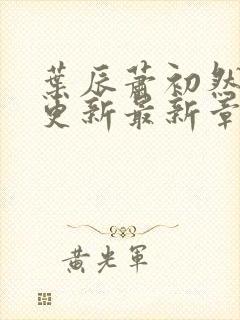 葉辰蕭初然
更新最新章
黄光軍